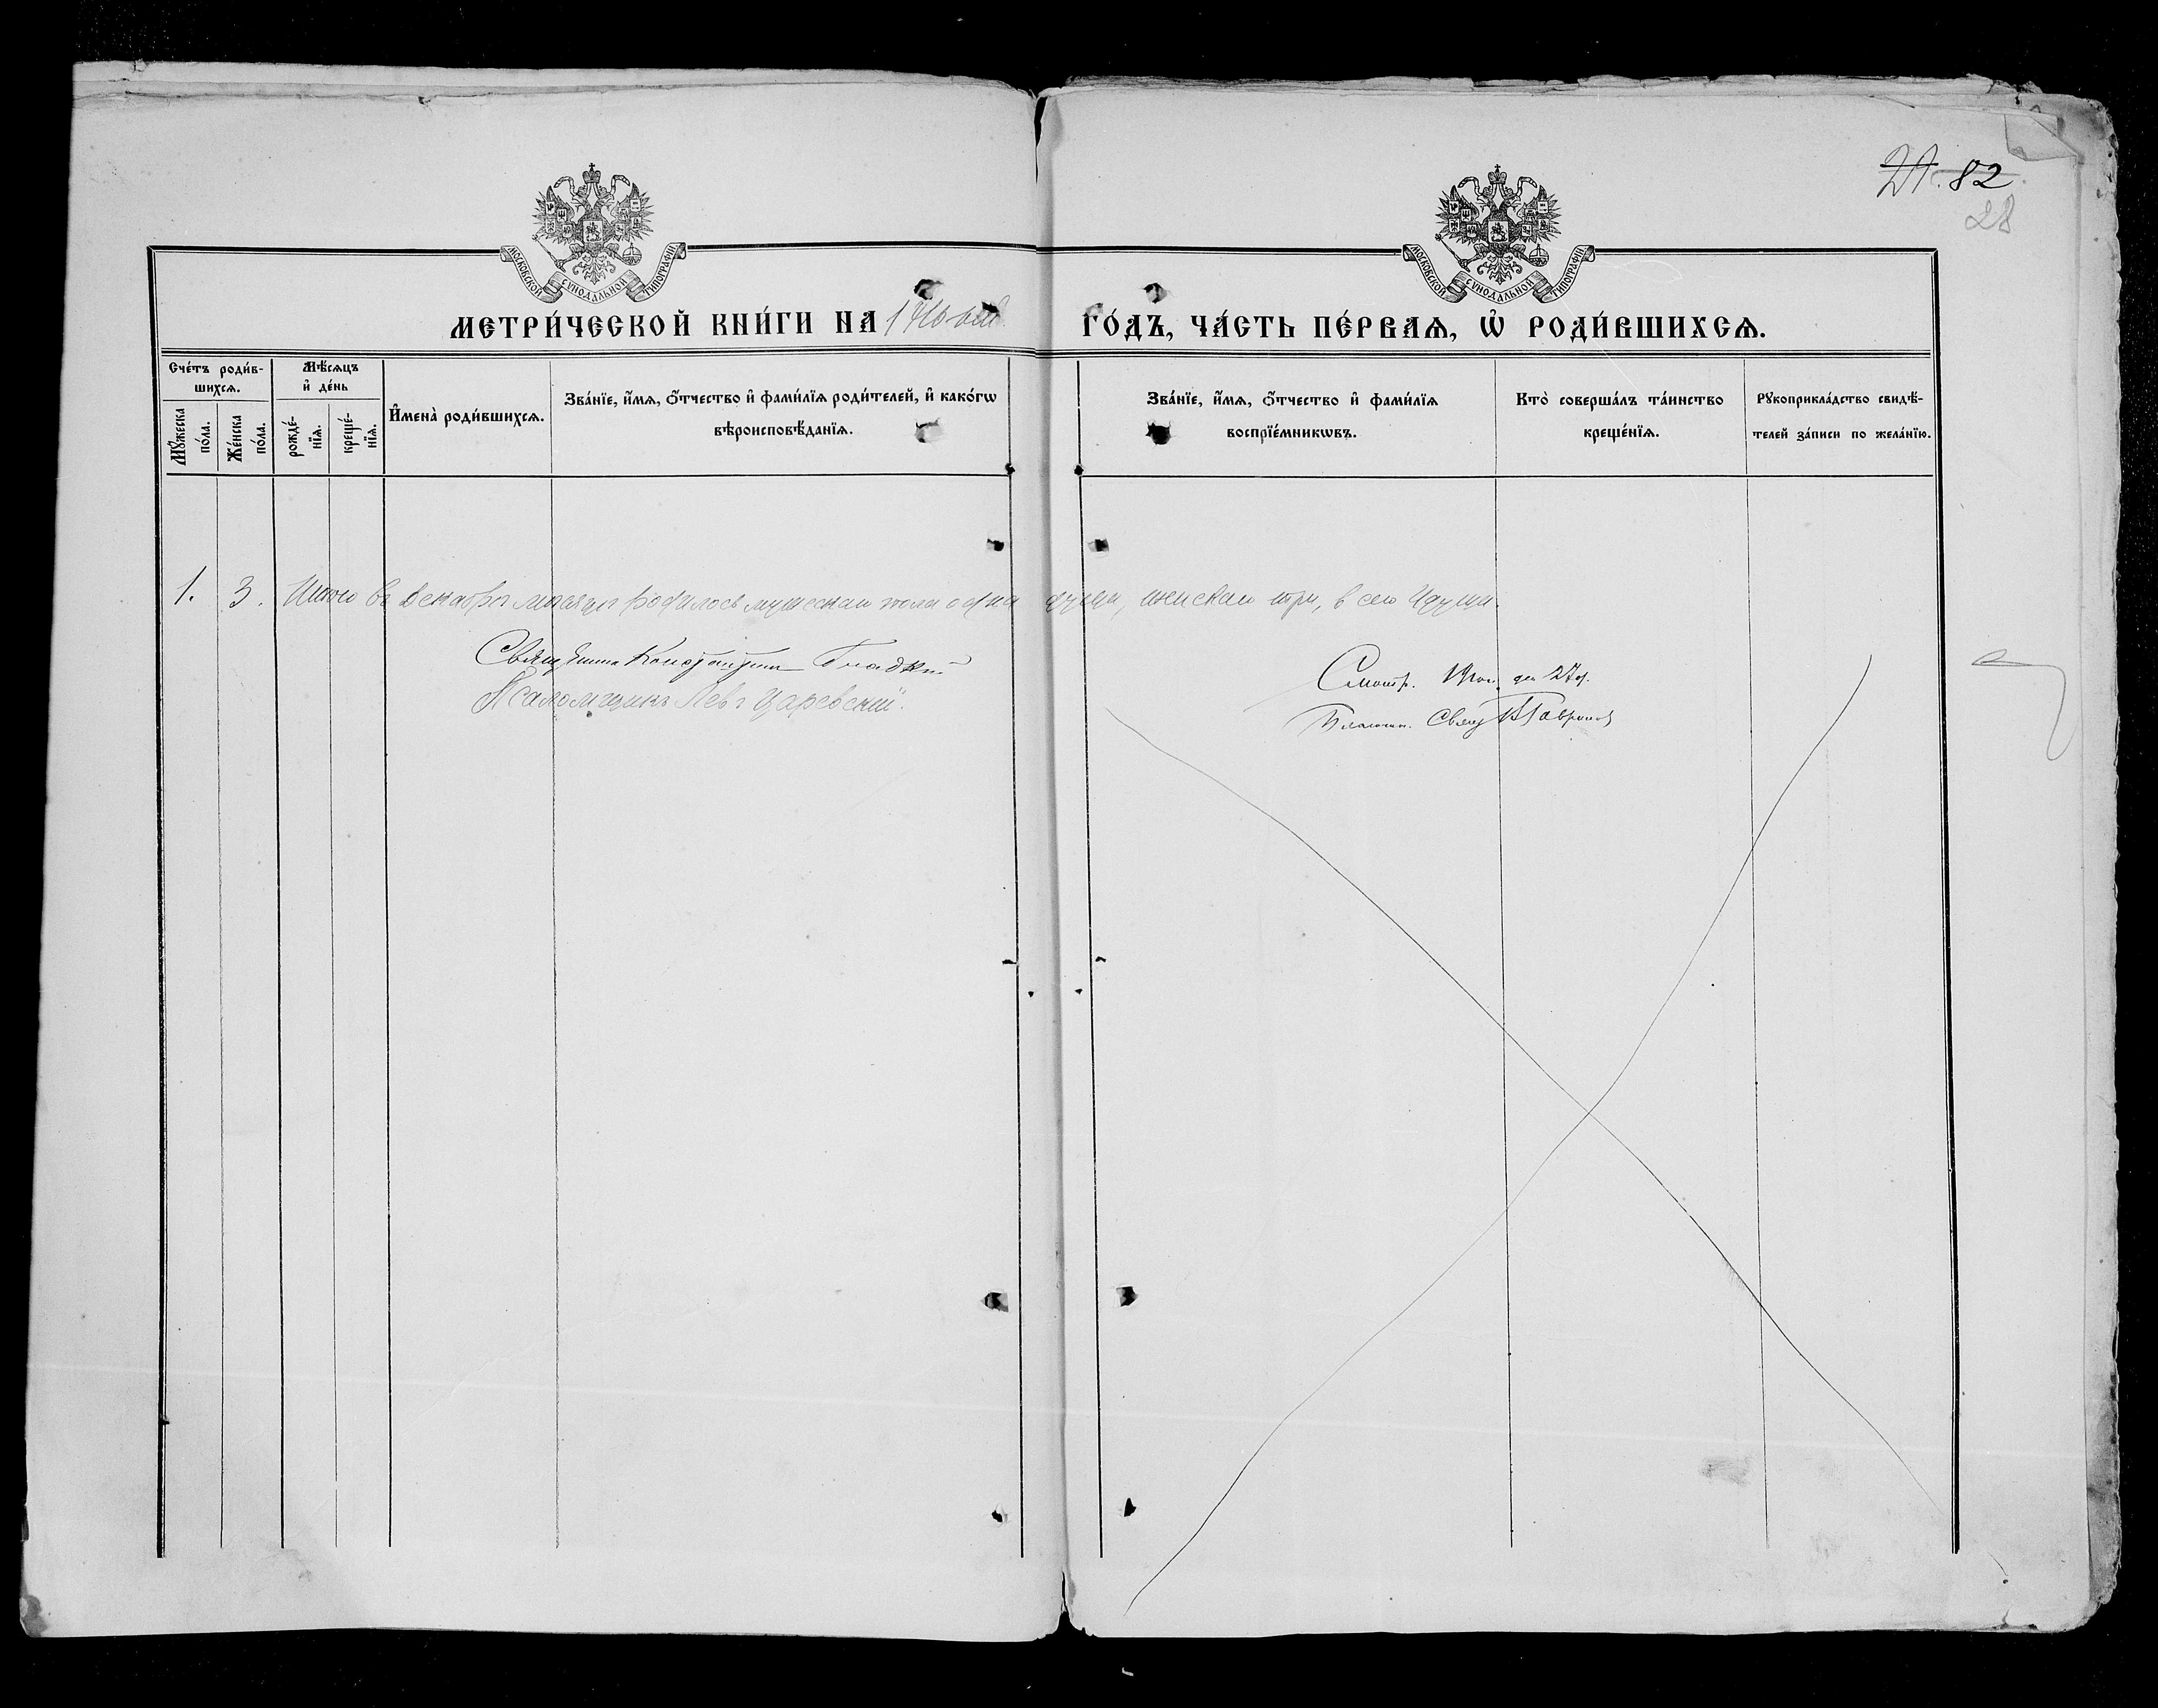 29. 82
28
МОСКОВСКОЙ СУНОДАЛЬНОЙ ТИПОГРАФІИ
МОСКОВСКОЙ СУНОДАЛЬНОЙ ТИПОГРАФІИ
МЕТРИ́ЧЕСКОЙ КНИ́ГИ НА
ГО́ДЪ, ЧА́СТЬ ПЕ́РВАѦ, Ѡ҆ РОДИ́ВШИХСѦ.
Сче́тъ роди́в-
шихсѧ.
Мꙋ́жеска
по́ла.
Же́нска
по́ла.
Мѣ́сѧцъ
и҆ де́нь
рожде́-
нїѧ.
креще́-
нїѧ.
И҆мена̀ роди́вшихсѧ.
Зва́нїе, и҆́мѧ, ѻ҆́тчество и҆ фами́лїѧ роди́телей, и҆ како́гѡ
вѣроисповѣ́данїѧ.
Зва́нїе, и҆́мѧ, ѻ҆́тчество и҆ фами́лїѧ
воспрїе́мникѡвъ.
Кто̀ соверша́лъ та́инство
креще́нїѧ.
Рꙋкоприкла́дство свидѣ́-
телей за́писи по жела́нїю.
1. 3. Итого въ Декабрѣ мѣсяцѣ родилось мужескаго пола одна душа, женскаго три, всего 4 души.
Священникъ Константинъ Гладкій
Псаломщикъ Левъ Царевскій.
Смотр. 19 дн. 27 д.
Благочин. Свящ.